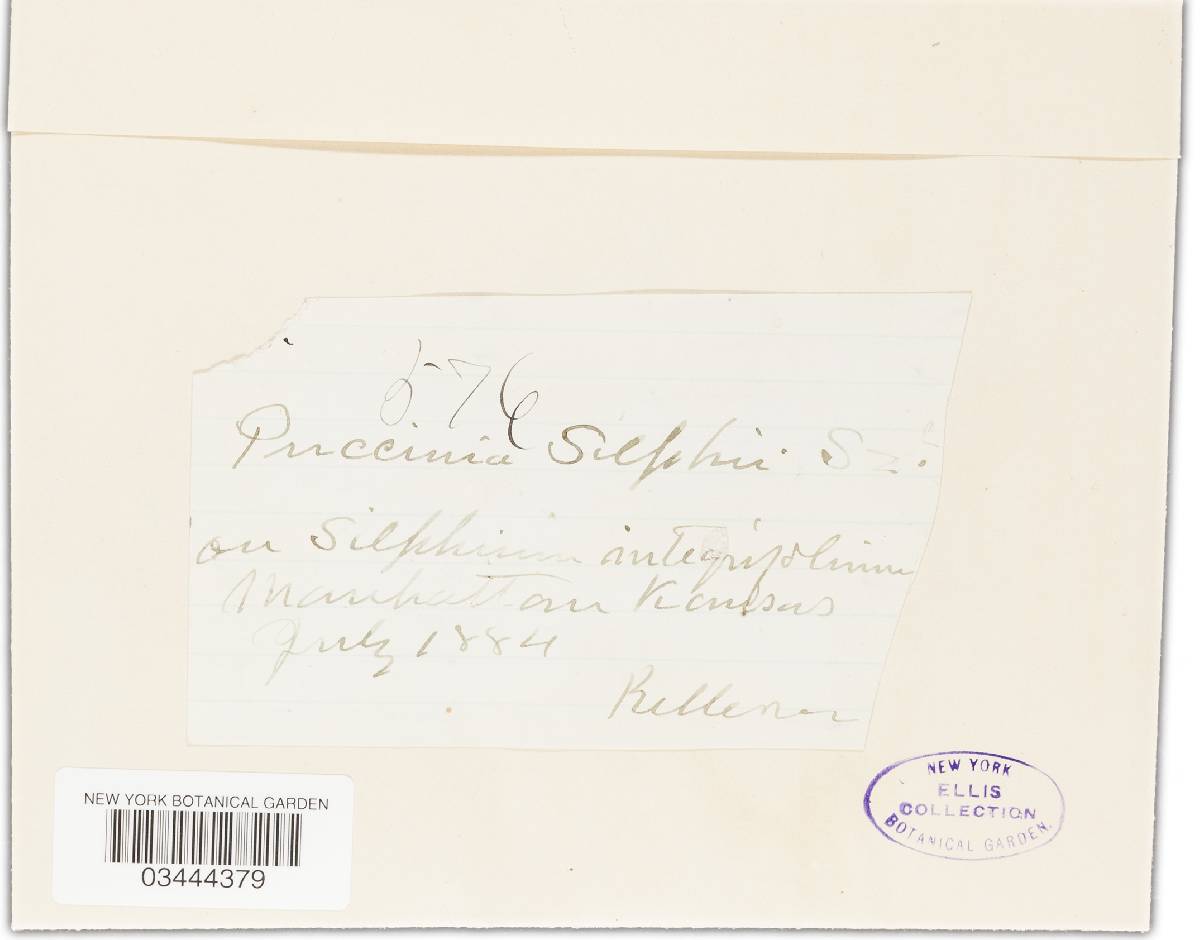 576
Puccinia Silphii Sz.
on Silphium integrifolium
Manhattan Kansas
July 1884
Kellerman
NEW YORK BOTANICAL GARDEN
03444379
NEW YORK
ELLIS
COLLECTION
BOTANICAL GARDEN.